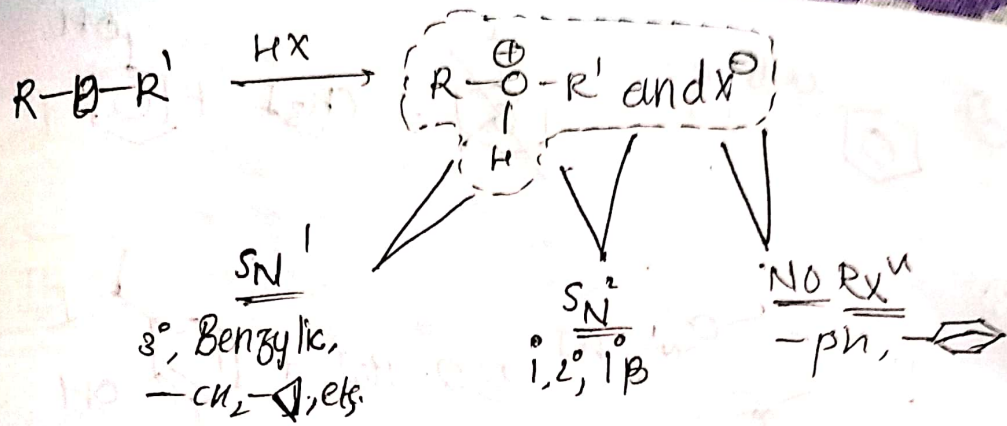 HX
R-O-R'
R-O-R' and X⊖
⊕
H
SN1
3°, Benzylic,
-CH2-◁, etc.
SN2
1°, 2°, 1°β
NO Rxn
-ph, -